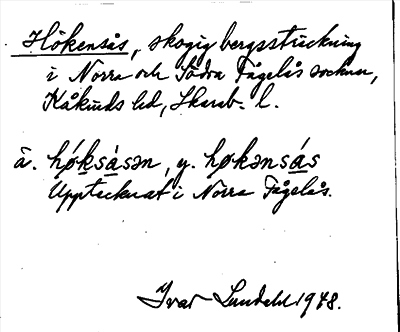 Hökensås, skogig bergssträckning
i Norra och Södra Fågelås socknar,
Kåkinds hd, Skarab. l.
ä. høksåsən, y. høkənsås
Upptecknat i Norra Fågelås.
Ivar Lundahl 1948.